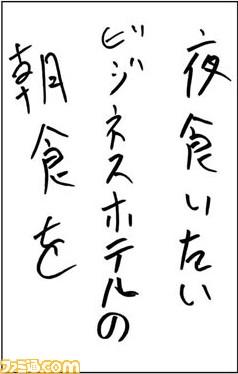 夜食いたい
ビジネスホテルの
朝食を
ファミ通.com